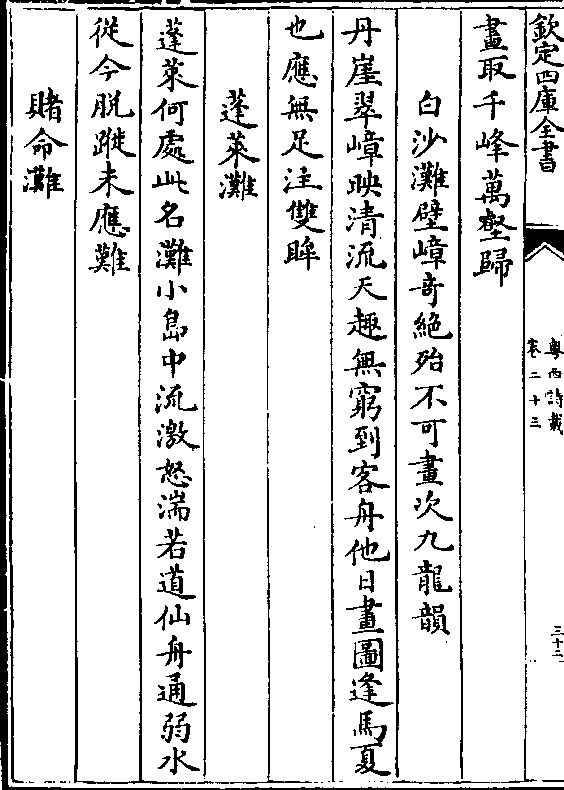 欽定四庫全書
粵西詩載
卷二十三
三十二
畫取千峰萬壑歸
白沙灘壁嶂奇絶殆不可畫次九龍韻
丹崖翠嶂映清流天趣無窮到客舟他日畫圖逢馬夏
也應無足注雙眸
蓬萊灘
蓬萊何處此名灘小島中流激怒湍若道仙舟通弱水
從今脱蹝未應難
賭命灘